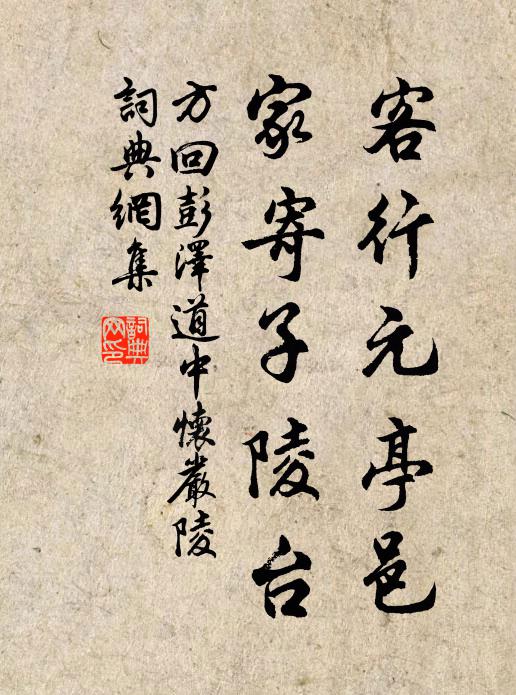 客行元亭邑
家寄子陵台
方回彭澤道中懷嚴陵
詞典網集
詞典網印